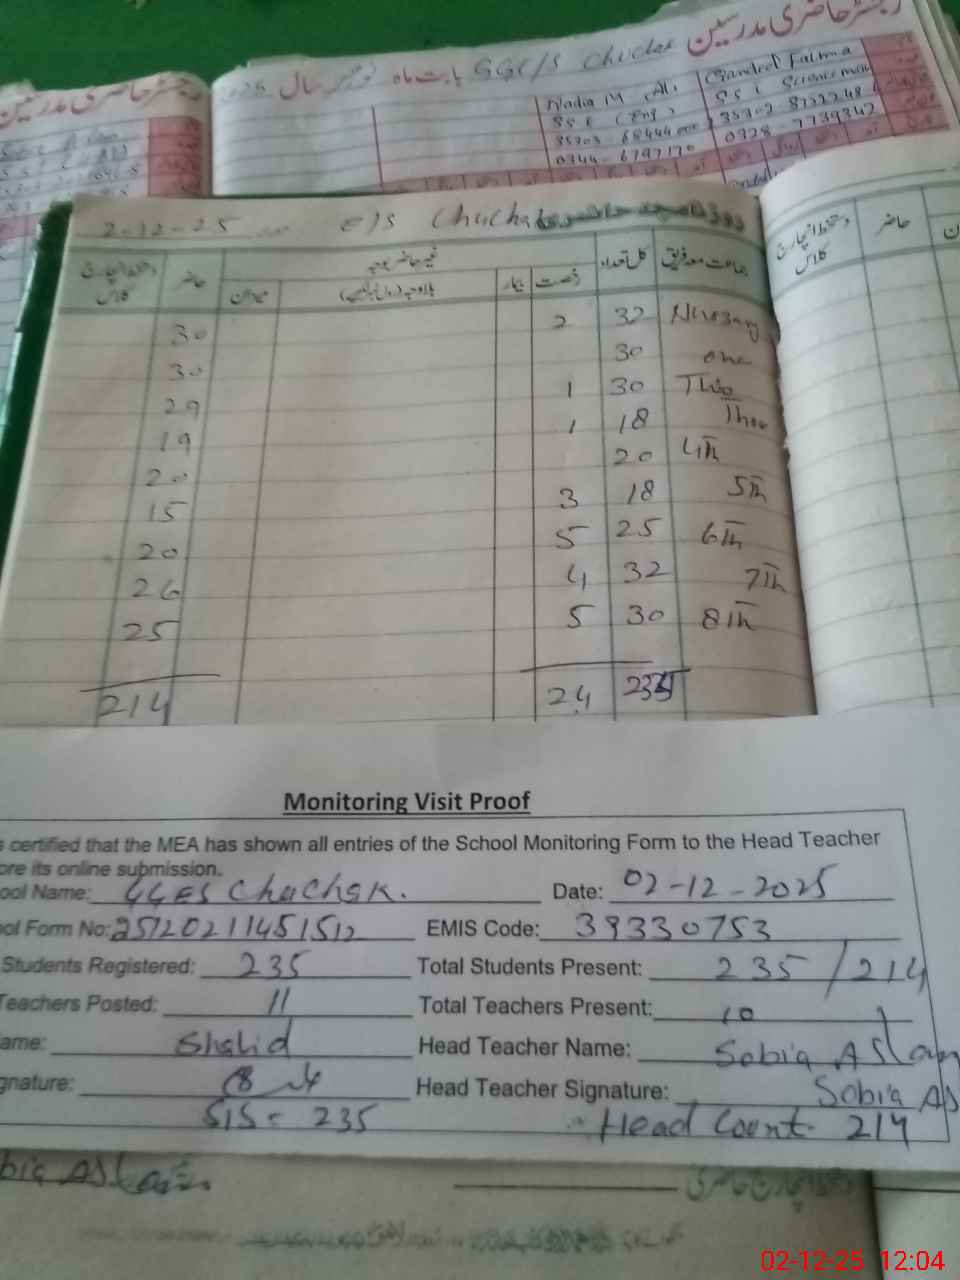 رجسٹر حاضری مدرسین GGE/S Chuchak بابت ماہ نومبر سال 2025
رجسٹر حاضری مدرسین
Nadia M. Ali
SSE (Eng)
0344-6797170
Fatima
SSE Science math
0328-7739342
2-12-25 E/S Chuchak روزنامچہ حاضری
جماعت معہ فریق کل تعداد غیر حاضر بوجہ حاضر دستخط انچارج کلاس
رخصت بیمار بلاوجہ میزان
Nursary 32 2 30
one 30 30
Two 30 1 29
Three 18 1 19
4th 20 20
5th 18 3 15
6th 25 5 20
7th 32 4 26
8th 30 5 25
24 214
دستخط انچارج کلاس حاضر
Monitoring Visit Proof
certified that the MEA has shown all entries of the School Monitoring Form to the Head Teacher
ore its online submission.
ool Name: GGES Chuchak. Date: 02-12-2025
ol Form No: 25120211451512 EMIS Code: 39330753
Students Registered: 235 Total Students Present: 235/214
Teachers Posted: 11 Total Teachers Present: 10
ame: Shahid Head Teacher Name: Sobia Aslam
gnature: Head Teacher Signature: Sobia As
SIS = 235 Head Count. 214
bia Aslam
02-12-25 12:04